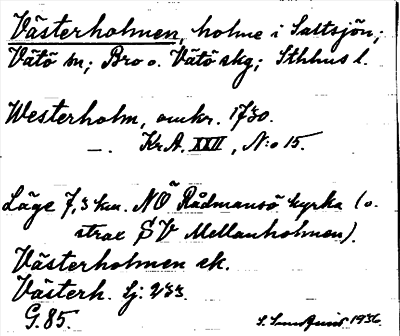 Västerholmen, holme i Saltsjön;
Vätö sn; Bro o. Vätö skg; Sthlms l.
Westerholm, omkr. 1730.
—. Kr.A. XXVI, N:o 15.
Läge 7,3 km. NÖ Rådmansö kyrka (o.
strax SV Mellanholmen).
Västerholmen ek.
Västerh. Lj: 233.
G. 85.
1936.